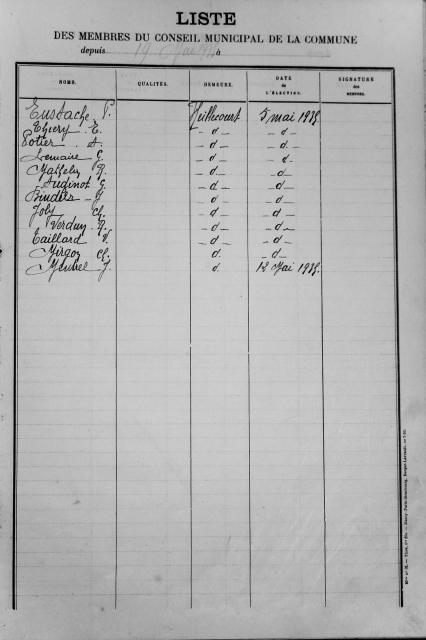 LISTE
DES MEMBRES DU CONSEIL MUNICIPAL DE LA COMMUNE
depuis 19 Mai à
NOMS. QUALITÉS. DEMEURE. DATE de L'ÉLECTION. SIGNATURE des MEMBRES.
Eustache P. 5 mai 1935
Thiery E. - d - - d -
Potier A. - d - - d -
Lemaire G. - d - - d -
Mathelin R. - d - - d -
Judinot G. - d - - d -
- d - - d -
Joly Ch. - d - - d -
Verdun R. - d - - d -
Taillard V. - d - - d -
Mirgon Ch. d. - d -
J. d. 12 Mai 1935.